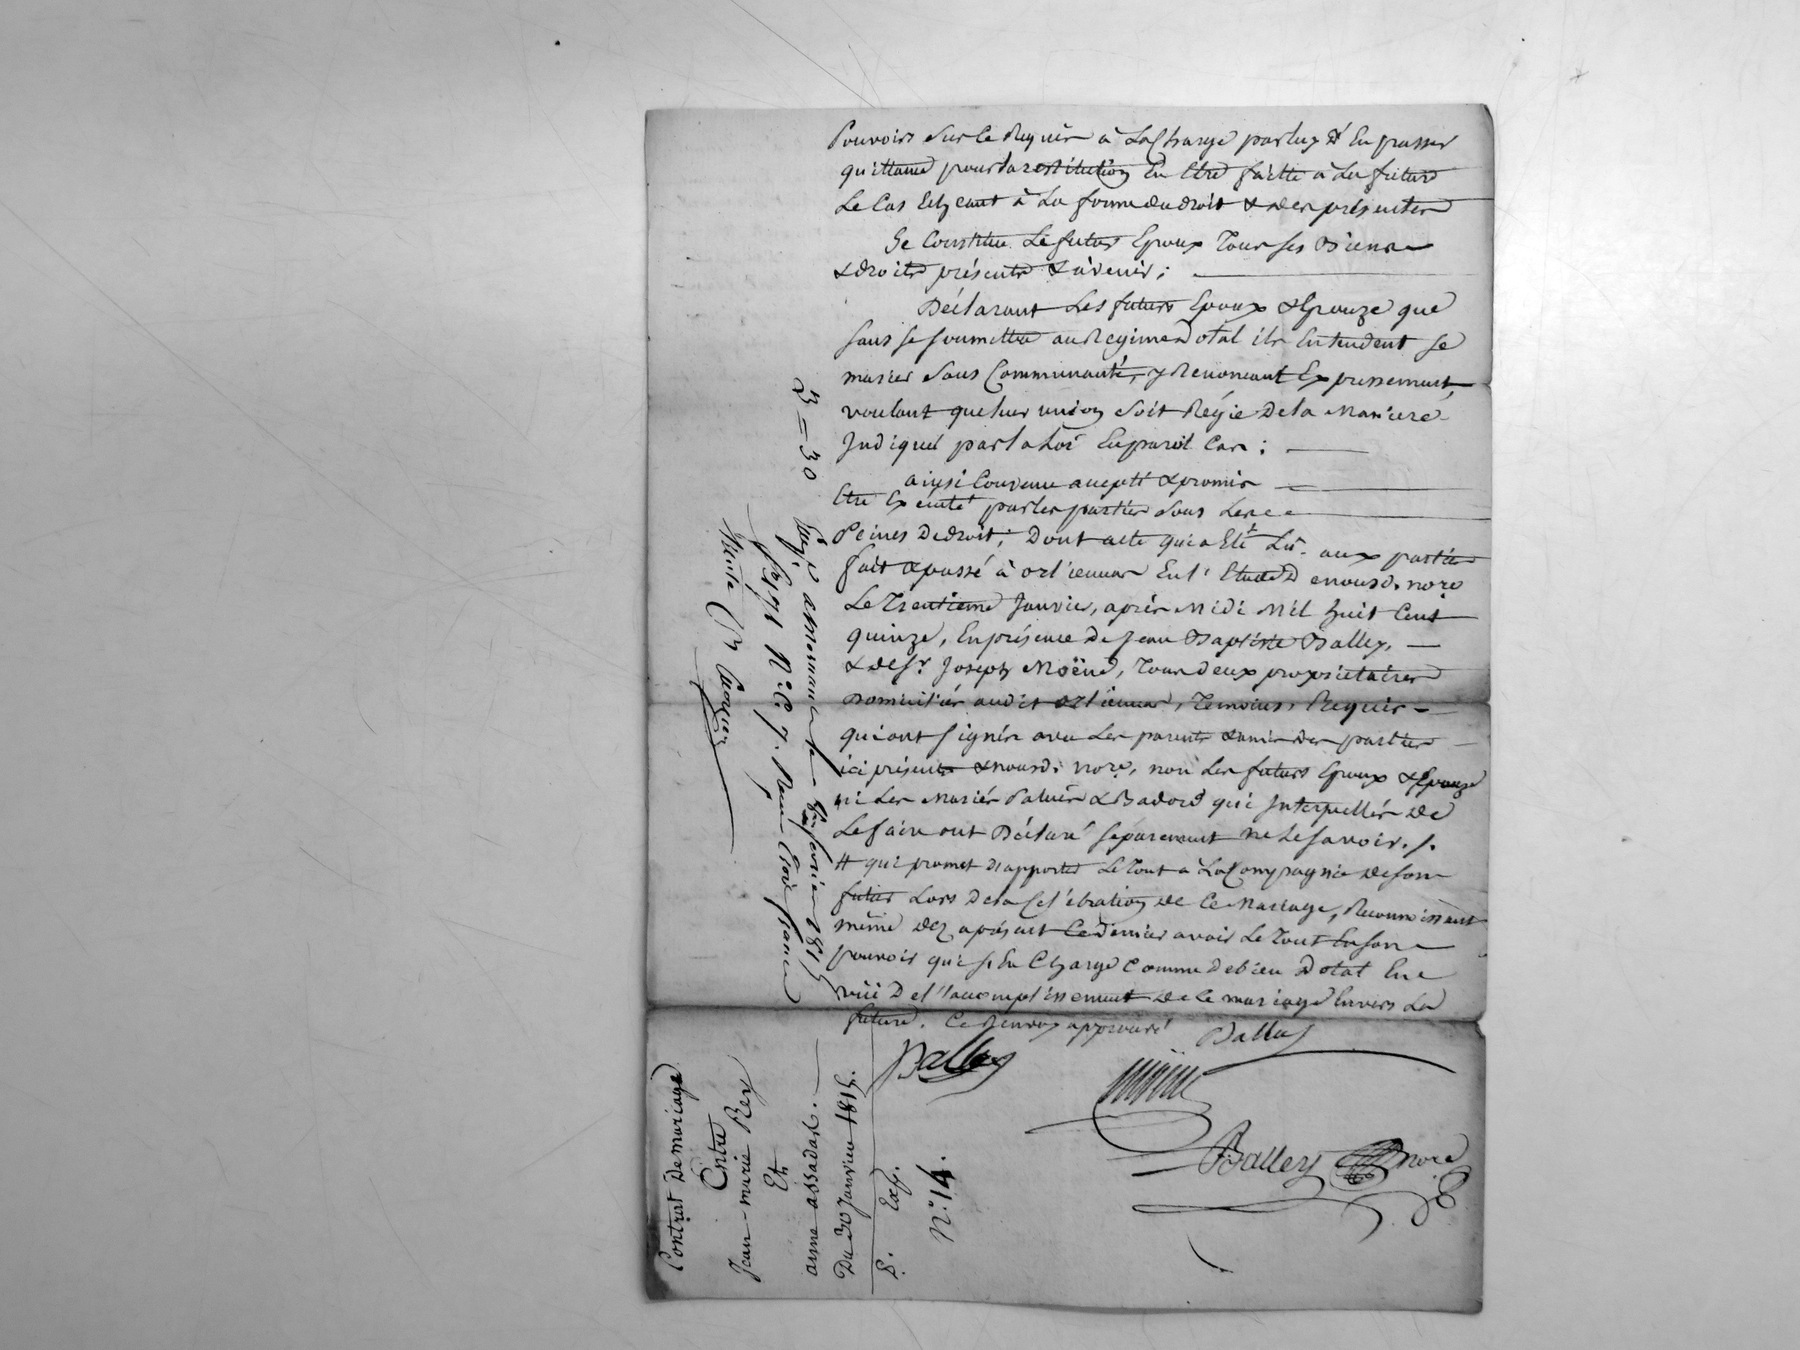 Pouvoirs sur ce Requis à La Charge par luy d'En passer
quittance pour la restitution En Etre faitte à La future
Le Cas Echeant à La forme du droit & des présentes
Se Constitue Le futur Epoux Tous ses Biens
& droits présents & à venir;
Déclarant Les futurs Epoux & Epouze que
sans se soumettre au Regime Dotal ils Entendent se
marier sans Communauté, y Renoncant Expressement,
voulant que leur union soit Régie de la Maniere
Indiqué par la Loi En pareil Cas;
ainsi Convenu accepté & promis
Etre Exeuté par les parties sous Les
Peines De droit; Dont acte qui a Eté Lû aux parties
fait & passé à ortieunas En l'Etude De nousd. nore
Le Trentieme Janvier, après Midi Mil huit Cent
quinze, En présence de Jean Baptiste Balley,
& de Sr. Joseph Moëne, Tous deux proprietaires
Domiciliés audit ortieunas, Temoins Requis
qui ont signés avec Les parents & amis des parties
ici présents & nousd. nore, non Les futurs Epoux & Epouze
ni Les Mariés & Badord qui Interpellés de
Le faire ont Déclaré separement ne Le savoir./.
# qui promet d'apporter Le Tout à La Compagnie de son
futur Lors de la Celébration de Ce Mariage, Reconnoissant
même dez aprésent Ce dernier avoir Le Tout En son
pouvoir qui s'En Charge Comme de bien Dotal En
vüe De l'accomplissement de Ce mariage Envers La
future. Ce Renvoy approuvé Balley
Balley
Balley nore
B = 30
février 1815
Contrat De mariage
Entre
Jean-marie Rey
Et
anne assada.
Du 30 Janvier 1815.
Exp.
N.° 14.